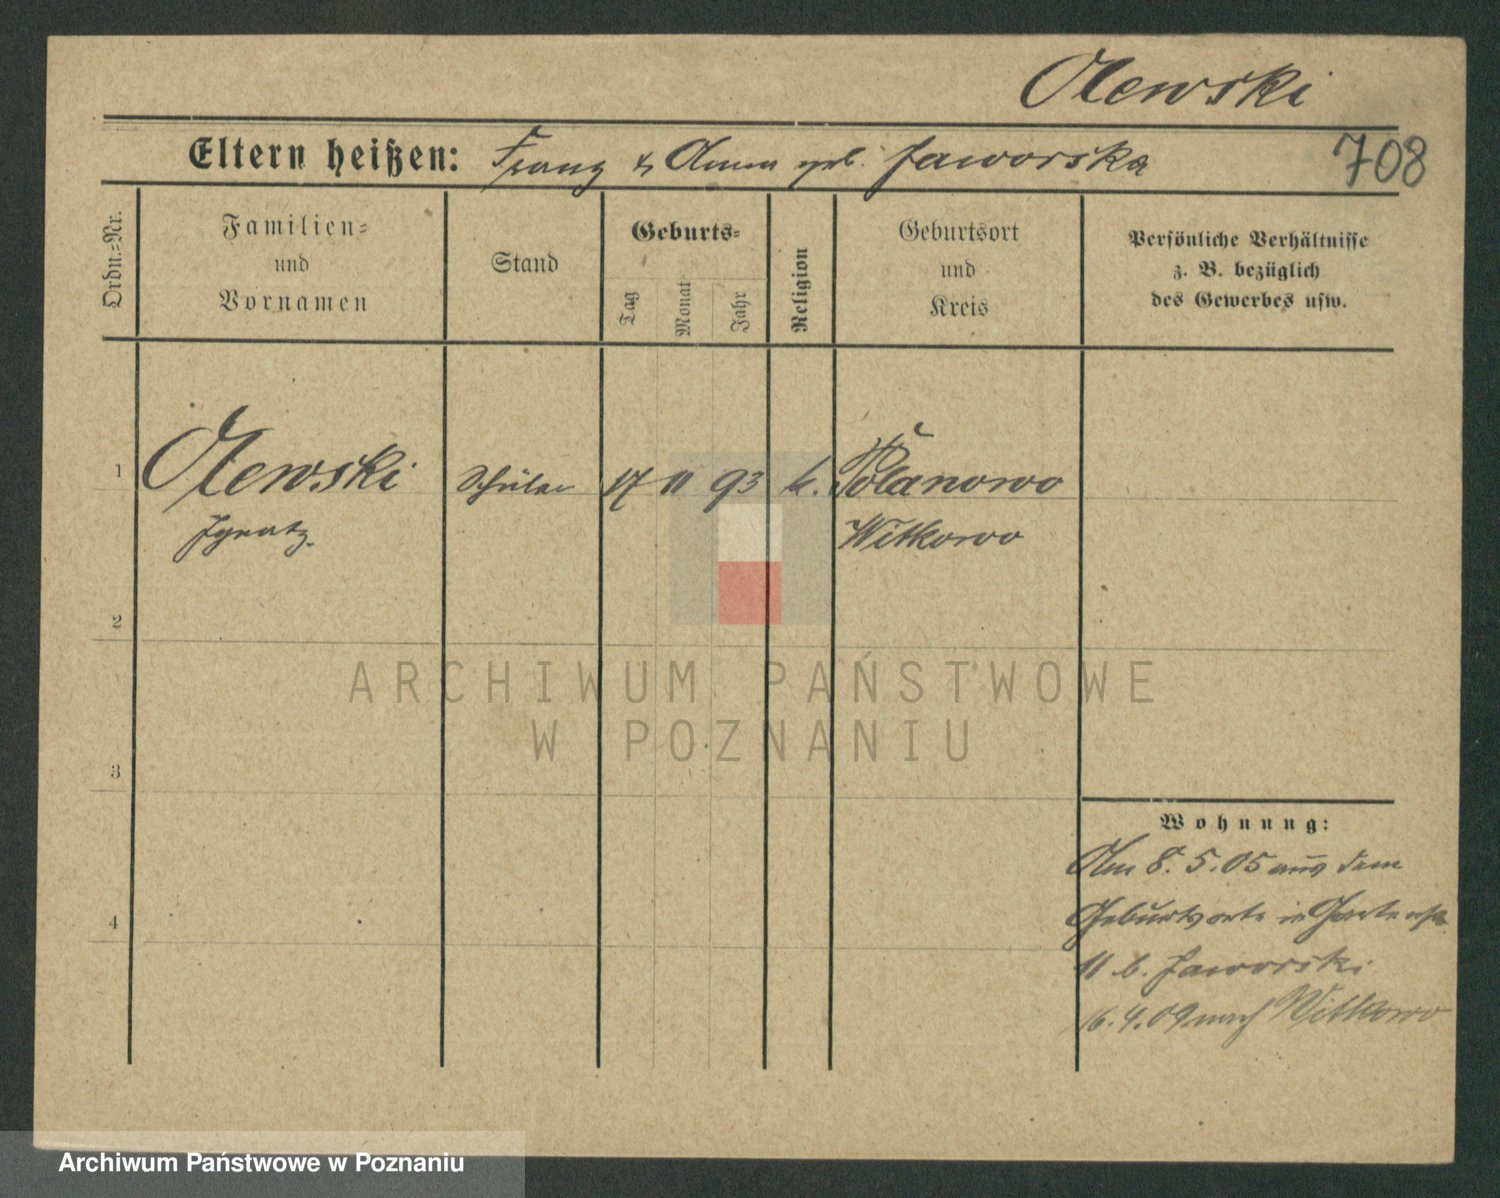 Olewski
Eltern heißen: Franz & Anna geb. Jaworska
708
Ordn.=Nr.
Familien=
und
Vornamen
Stand
Geburts=
Tag
Monat
Jahr
Religion
Geburtsort
und
Kreis
Persönliche Verhältnisse
z. B. bezüglich
des Gewerbes usw.
1
Olewski Schüler 17 11 93 k. Polanowo
Ignatz. Witkowo
2
3
4
ARCHIWUM PAŃSTWOWE
W POZNANIU
Wohnung:
Am 8. 5. 05 aus dem
Geburtsorte in
11 b. Jaworski
16. 4. 09 nach Witkowo
Archiwum Państwowe w Poznaniu